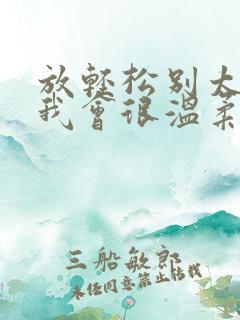 放轻松别太
我会很温柔
三船敏郎
未经同意禁止转载